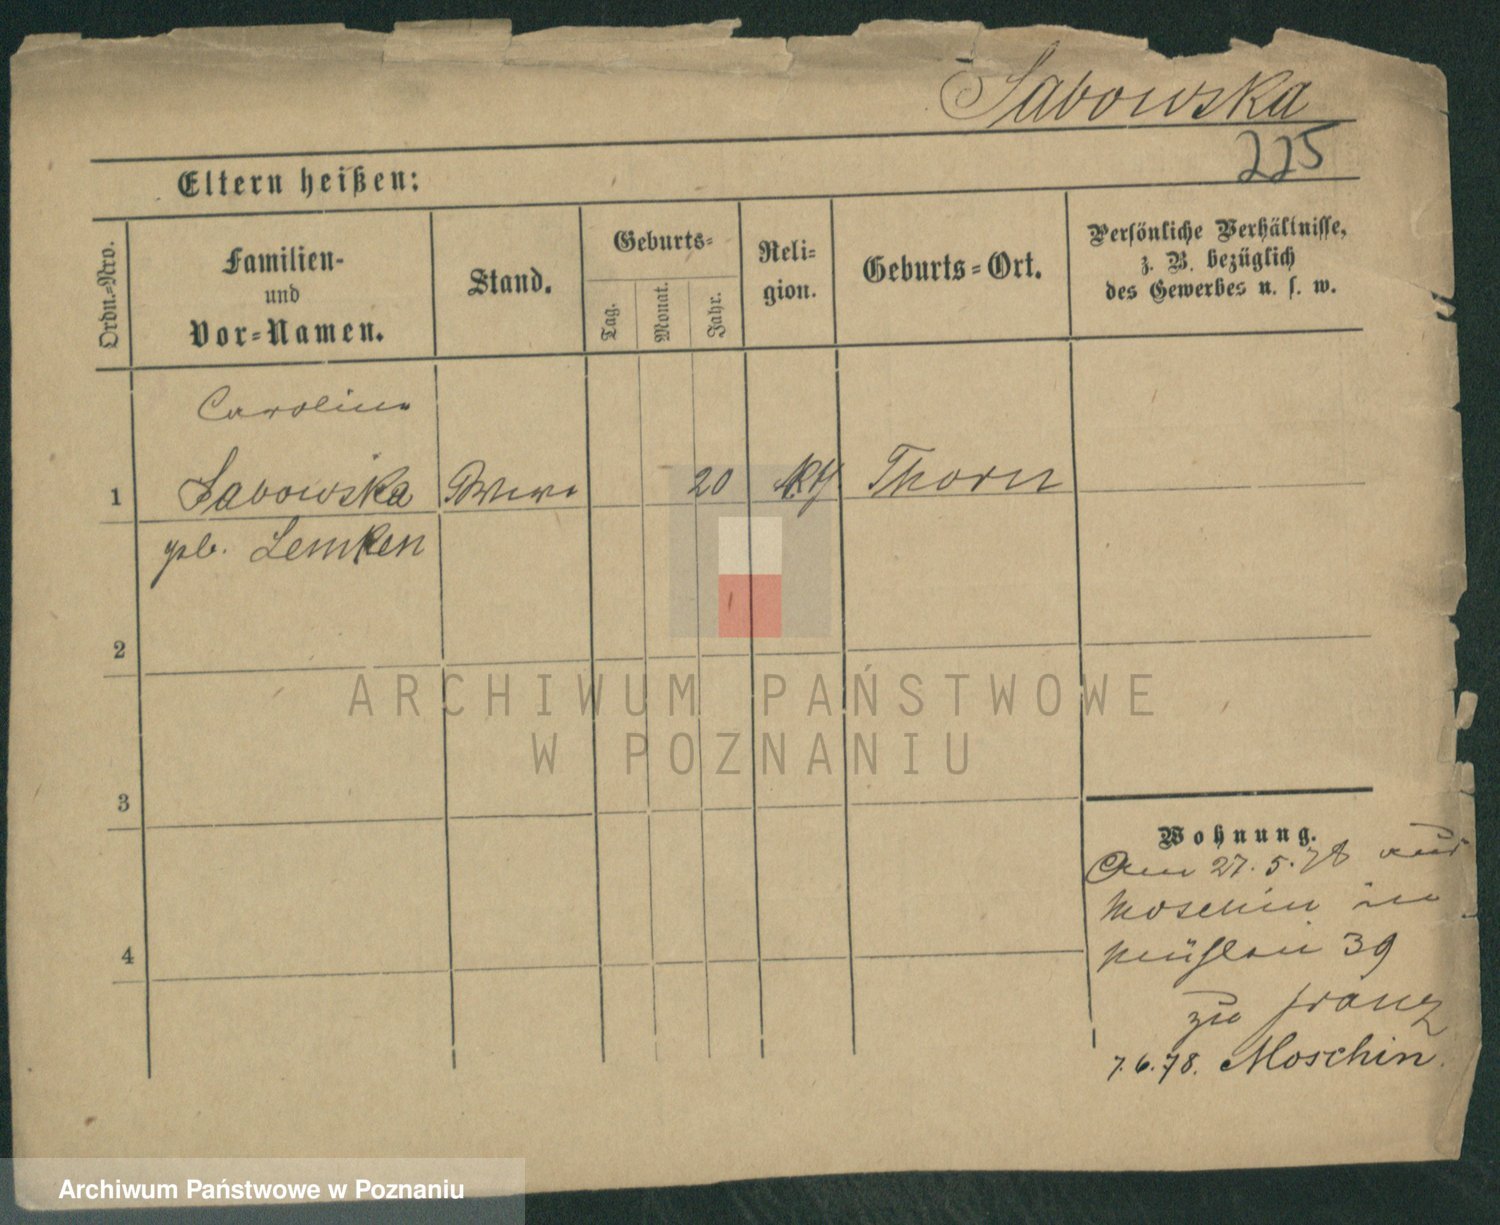 Sabowska
225
Eltern heißen:
Ordn.=Nro.
Familien-
und
Vor=Namen.
Stand.
Geburts=
Tag.
Monat.
Jahr.
Reli=
gion.
Geburts=Ort.
Persönliche Verhältnisse,
z. B. bezüglich
des Gewerbes u. s. w.
Caroline
1 Sabowska 20 Thorn
geb. Lemken
2
3
4
Wohnung.
Am 27.5.78 aus
Moschin in
Mühlen 39
zu Franz
7.6.78. Moschin.
ARCHIWUM PAŃSTWOWE
W POZNANIU
Archiwum Państwowe w Poznaniu